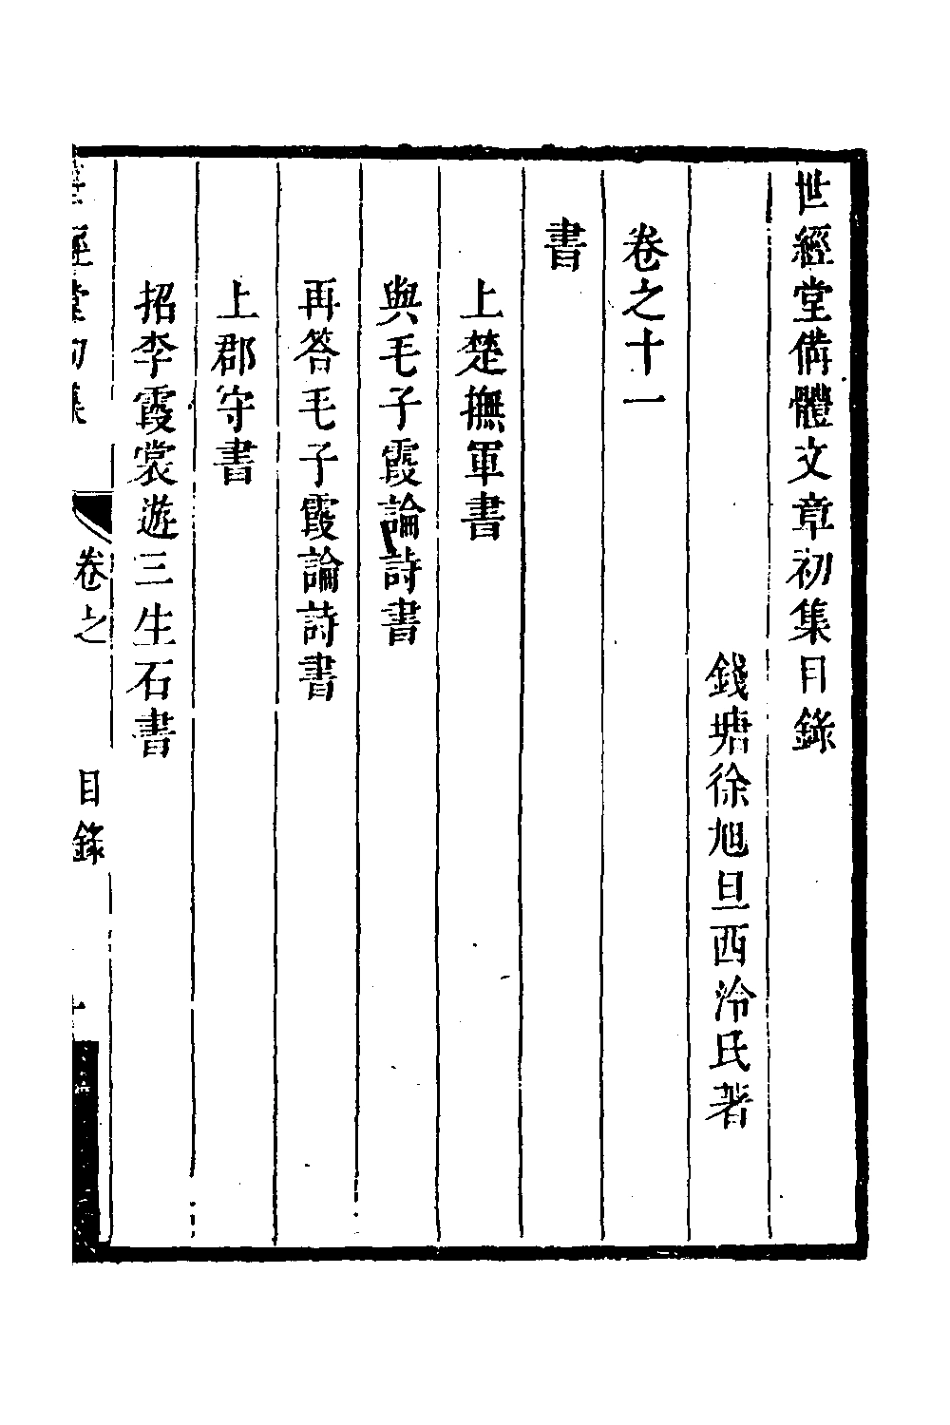 世經堂備體文章初集目錄
錢塘徐旭旦西泠氏著
卷之十一
書
上楚撫軍書
與毛子霞論詩書
再答毛子霞論詩書
上郡守書
招李霞裳遊三生石書
世經堂初集 卷之 目錄